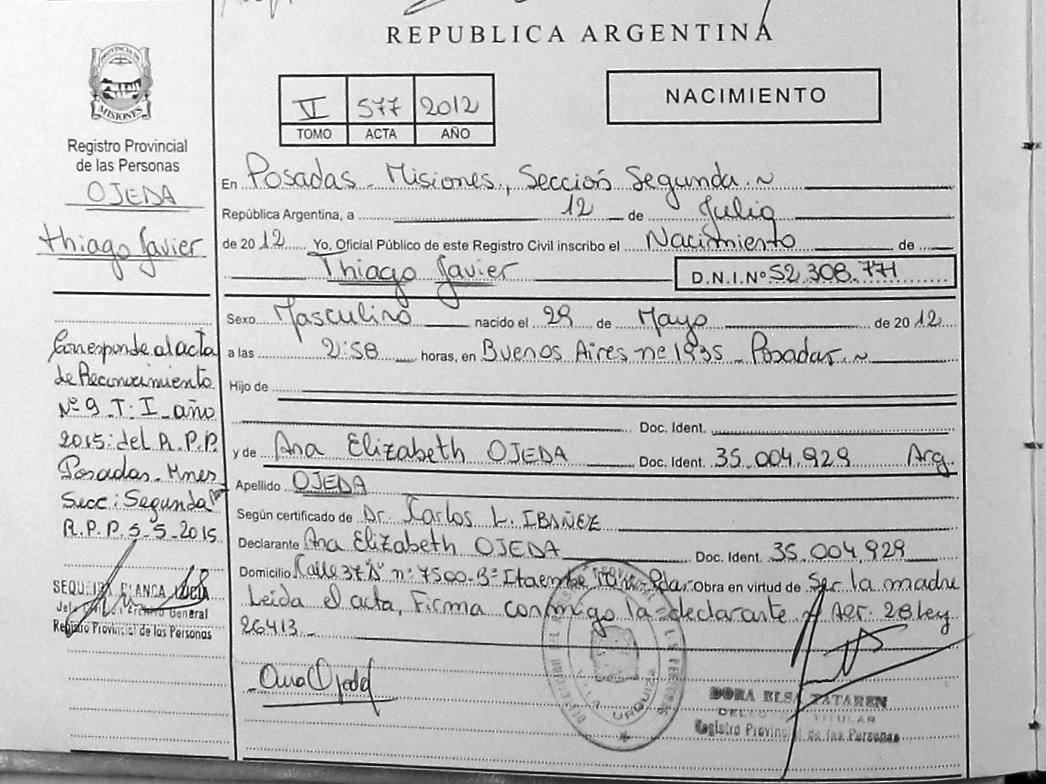 REPUBLICA ARGENTINA
PROVINCIA DE
MISIONES
Registro Provincial
de las Personas
OJEDA
Thiago Javier
VI 577 2012
TOMO ACTA AÑO
NACIMIENTO
En Posadas - Misiones, Sección Segunda. ~
República Argentina, a 12 de Julio
de 2012 Yo, Oficial Público de este Registro Civil inscribo el Nacimiento de
Thiago Javier D.N.I.Nº 52.308.771
Sexo Masculino nacido el 29 de Mayo de 2012
a las 2:58 horas, en Buenos Aires nº 1935 - Posadas ~
Hijo de
Doc. Ident.
y de Ana Elizabeth OJEDA Doc. Ident. 35.004.929 Arg.
Apellido OJEDA
Según certificado de Dr. Carlos L. IBAÑEZ
Declarante Ana Elizabeth OJEDA Doc. Ident. 35.004.929
Domicilio Calle 37 nº 7500 - Bº Itaembe Obra en virtud de Ser la madre
Leida el acta, Firma conmigo la declarante 28 ley
26413.
Ana Ojeda
VILLA URQUIZA
DORA ELSA TATAREN
DELEGADA TITULAR
Registro Provincial de las Personas
Corresponde al acta
de Reconocimiento
Nº 9 - T: I - año
2015: del R.P.P.
Posadas - Mnes
Secc: Segunda
R.P.P. 5-5-2015
SEQUEIRA BLANCA
General
Registro Provincial de las Personas